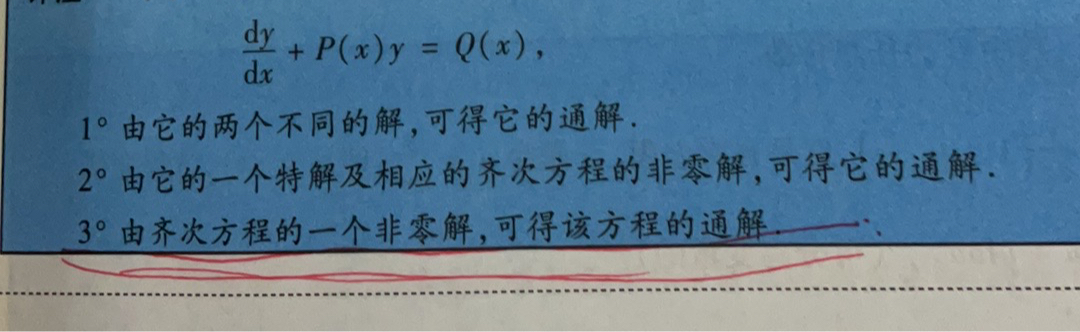 dy/dx + P(x)y = Q(x),
1° 由它的两个不同的解,可得它的通解.
2° 由它的一个特解及相应的齐次方程的非零解,可得它的通解.
3° 由齐次方程的一个非零解,可得该方程的通解.